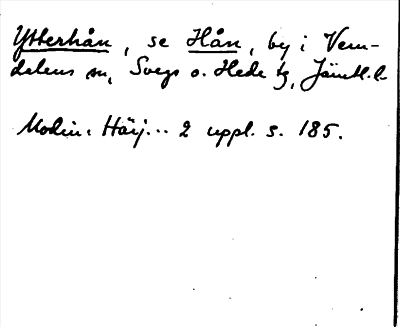 Ytterhån, se Hån, by i Vem-
dalens sn, Svegs o. Hede tg, Jämtl. l.
Modin: Härj... 2 uppl. s. 185.